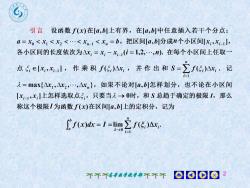 引言 设函数 f(x)在[a,b]上有界，在[a,b]中任意插入若干个分点：
a = x₀ < x₁ < x₂ < ⋯ < xₙ₋₁ < xₙ = b，把区间[a,b]分成n个小区间[xᵢ₋₁,xᵢ]，
各小区间的长度依次为Δxᵢ = xᵢ − xᵢ₋₁(i = 1,2,⋯,n)，在每个小区间上任取一
点 ξᵢ∈[xᵢ₋₁,xᵢ]，作乘积 f(ξᵢ)Δxᵢ，并作出和 S = ∑ᵢ₌₁ⁿ f(ξᵢ)Δxᵢ，记
λ = max{Δx₁,Δx₂,⋯,Δxₙ}，如果不论对[a,b]怎样划分，也不论在小区间
[xᵢ₋₁,xᵢ]上怎样选取点ξᵢ，只要当λ → 0时，和 S 总趋于确定的极限 I，那么
称这个极限 I 为函数 f(x)在区间[a,b]上的定积分，记为
∫ₐᵇ f(x)dx = I = lim_{λ→0} ∑ᵢ₌₁ⁿ f(ξᵢ)Δxᵢ.
2